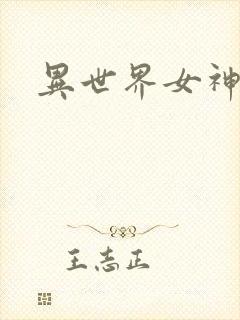 異世界女神
王志正